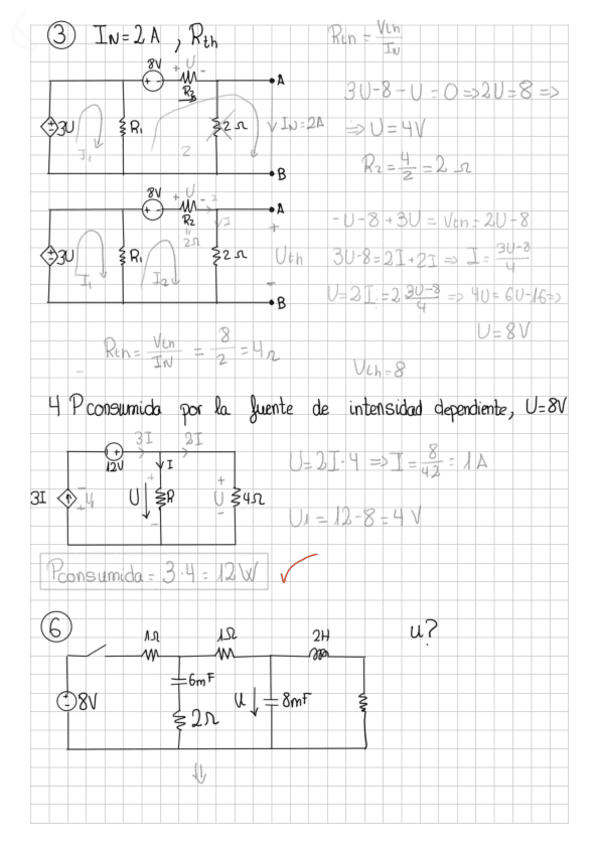 ③ IN=2A , Rth
Rth = Vth/IN
8V + U -
R3
A
3U
R1
2Ω
∨ IN=2A
I1
2
B
3U-8-U=0 ⇒ 2U=8 ⇒
⇒ U=4V
R2 = 4/2 = 2 Ω
8V + U - I
R2
A
=
2Ω
I
+
3U
R1
2Ω
Uth
I1
I2
-
B
-U-8+3U = Vth = 2U-8
3U-8=2I+2I ⇒ I = 3U-8/4
U=2I=2 3U-8/4 ⇒ 4U=6U-16 ⇒
U=8V
Rth = Vth/IN = 8/2 = 4Ω
Vth=8
4 Pconsumida por la fuente de intensidad dependiente, U=8V
3I 2I
12V
I
3I
4
U
R
U
4Ω
U=2I·4 ⇒ I = 8/42 = 1A
U1 = 12-8 = 4V
Pconsumida = 3·4 = 12W ✓
⑥
1Ω 1Ω 2H
u?
8V
6mF
2Ω
u ↓
8mF
⇓